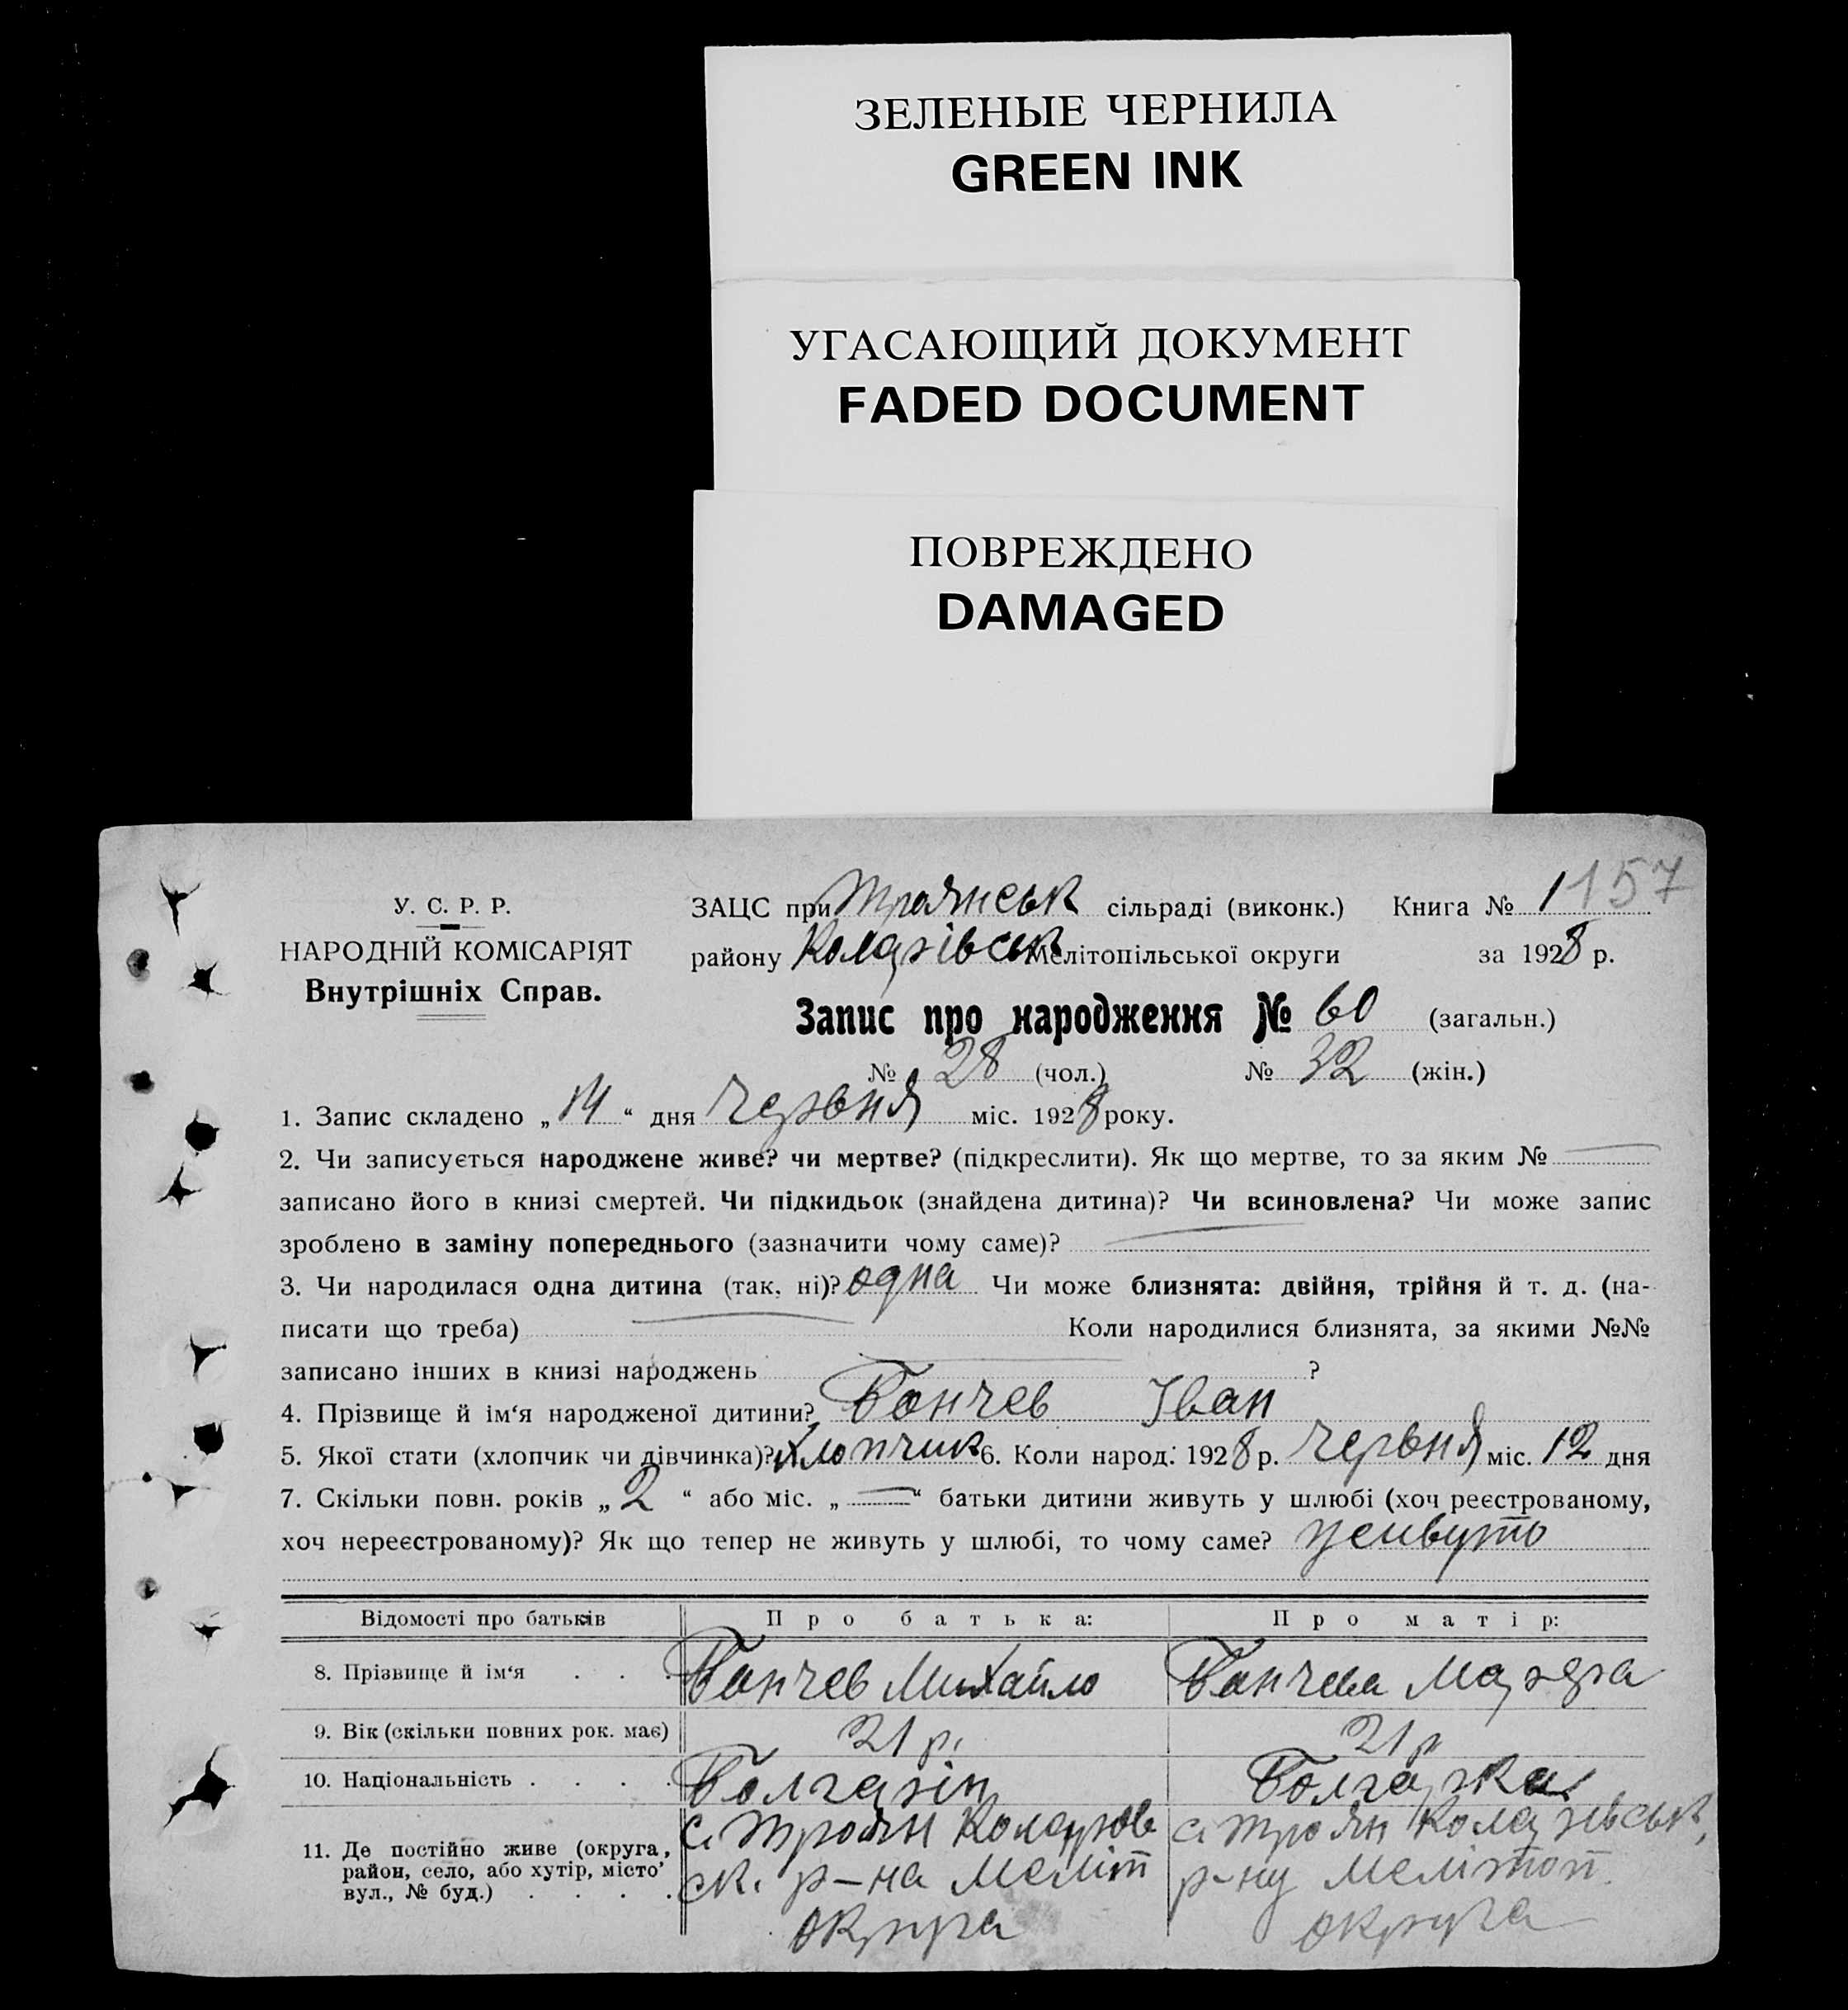 ЗЕЛЕНЫЕ ЧЕРНИЛА
GREEN INK
УГАСАЮЩИЙ ДОКУМЕНТ
FADED DOCUMENT
ПОВРЕЖДЕНО
DAMAGED
157
У. С. Р. Р.
НАРОДНІЙ КОМІСАРІЯТ
Внутрішніх Справ.
ЗАЦС при Троянськ сільраді (виконк.) Книга № 1
району Коларівськ Мелітопільської округи за 1928 р.
Запис про народження № 60 (загальн.)
№ 28 (чол.) № 32 (жін.)
1. Запис складено „14“ дня червня міс. 1928 року.
2. Чи записується народжене живе? чи мертве? (підкреслити). Як що мертве, то за яким № —
записано його в книзі смертей. Чи підкидьок (знайдена дитина)? Чи всиновлена? Чи може запис
зроблено в заміну попереднього (зазначити чому саме)? —
3. Чи народилася одна дитина (так, ні)? одна Чи може близнята: двійня, трійня й т. д. (на-
писати що треба) — Коли народилися близнята, за якими №№
записано інших в книзі народжень — ?
4. Прізвище й ім‘я народженої дитини? Бончев Іван
5. Якої стати (хлопчик чи дівчинка)? Хлопчик 6. Коли народ: 1928 р. червня міс. 12 дня
7. Скільки повн. років „2“ або міс. „—“ батьки дитини живуть у шлюбі (хоч реєстрованому,
хоч нереєстрованому)? Як що тепер не живуть у шлюбі, то чому саме? живуть
Відомості про батьків Про батька: Про матір:
8. Прізвище й ім‘я . . . Бончев Михайло Бончева
9. Вік (скільки повних рок. має) 21 р. 21 р
10. Національність . . . . Болгарін Болгарка
11. Де постійно живе (округа, район, село, або хутір, місто’ вул., № буд.) . . . .
с. Троян Коларов
ск. р-на Меліт
округа
с. Троян Коларівськ,
р-ну Мелітоп.
округа